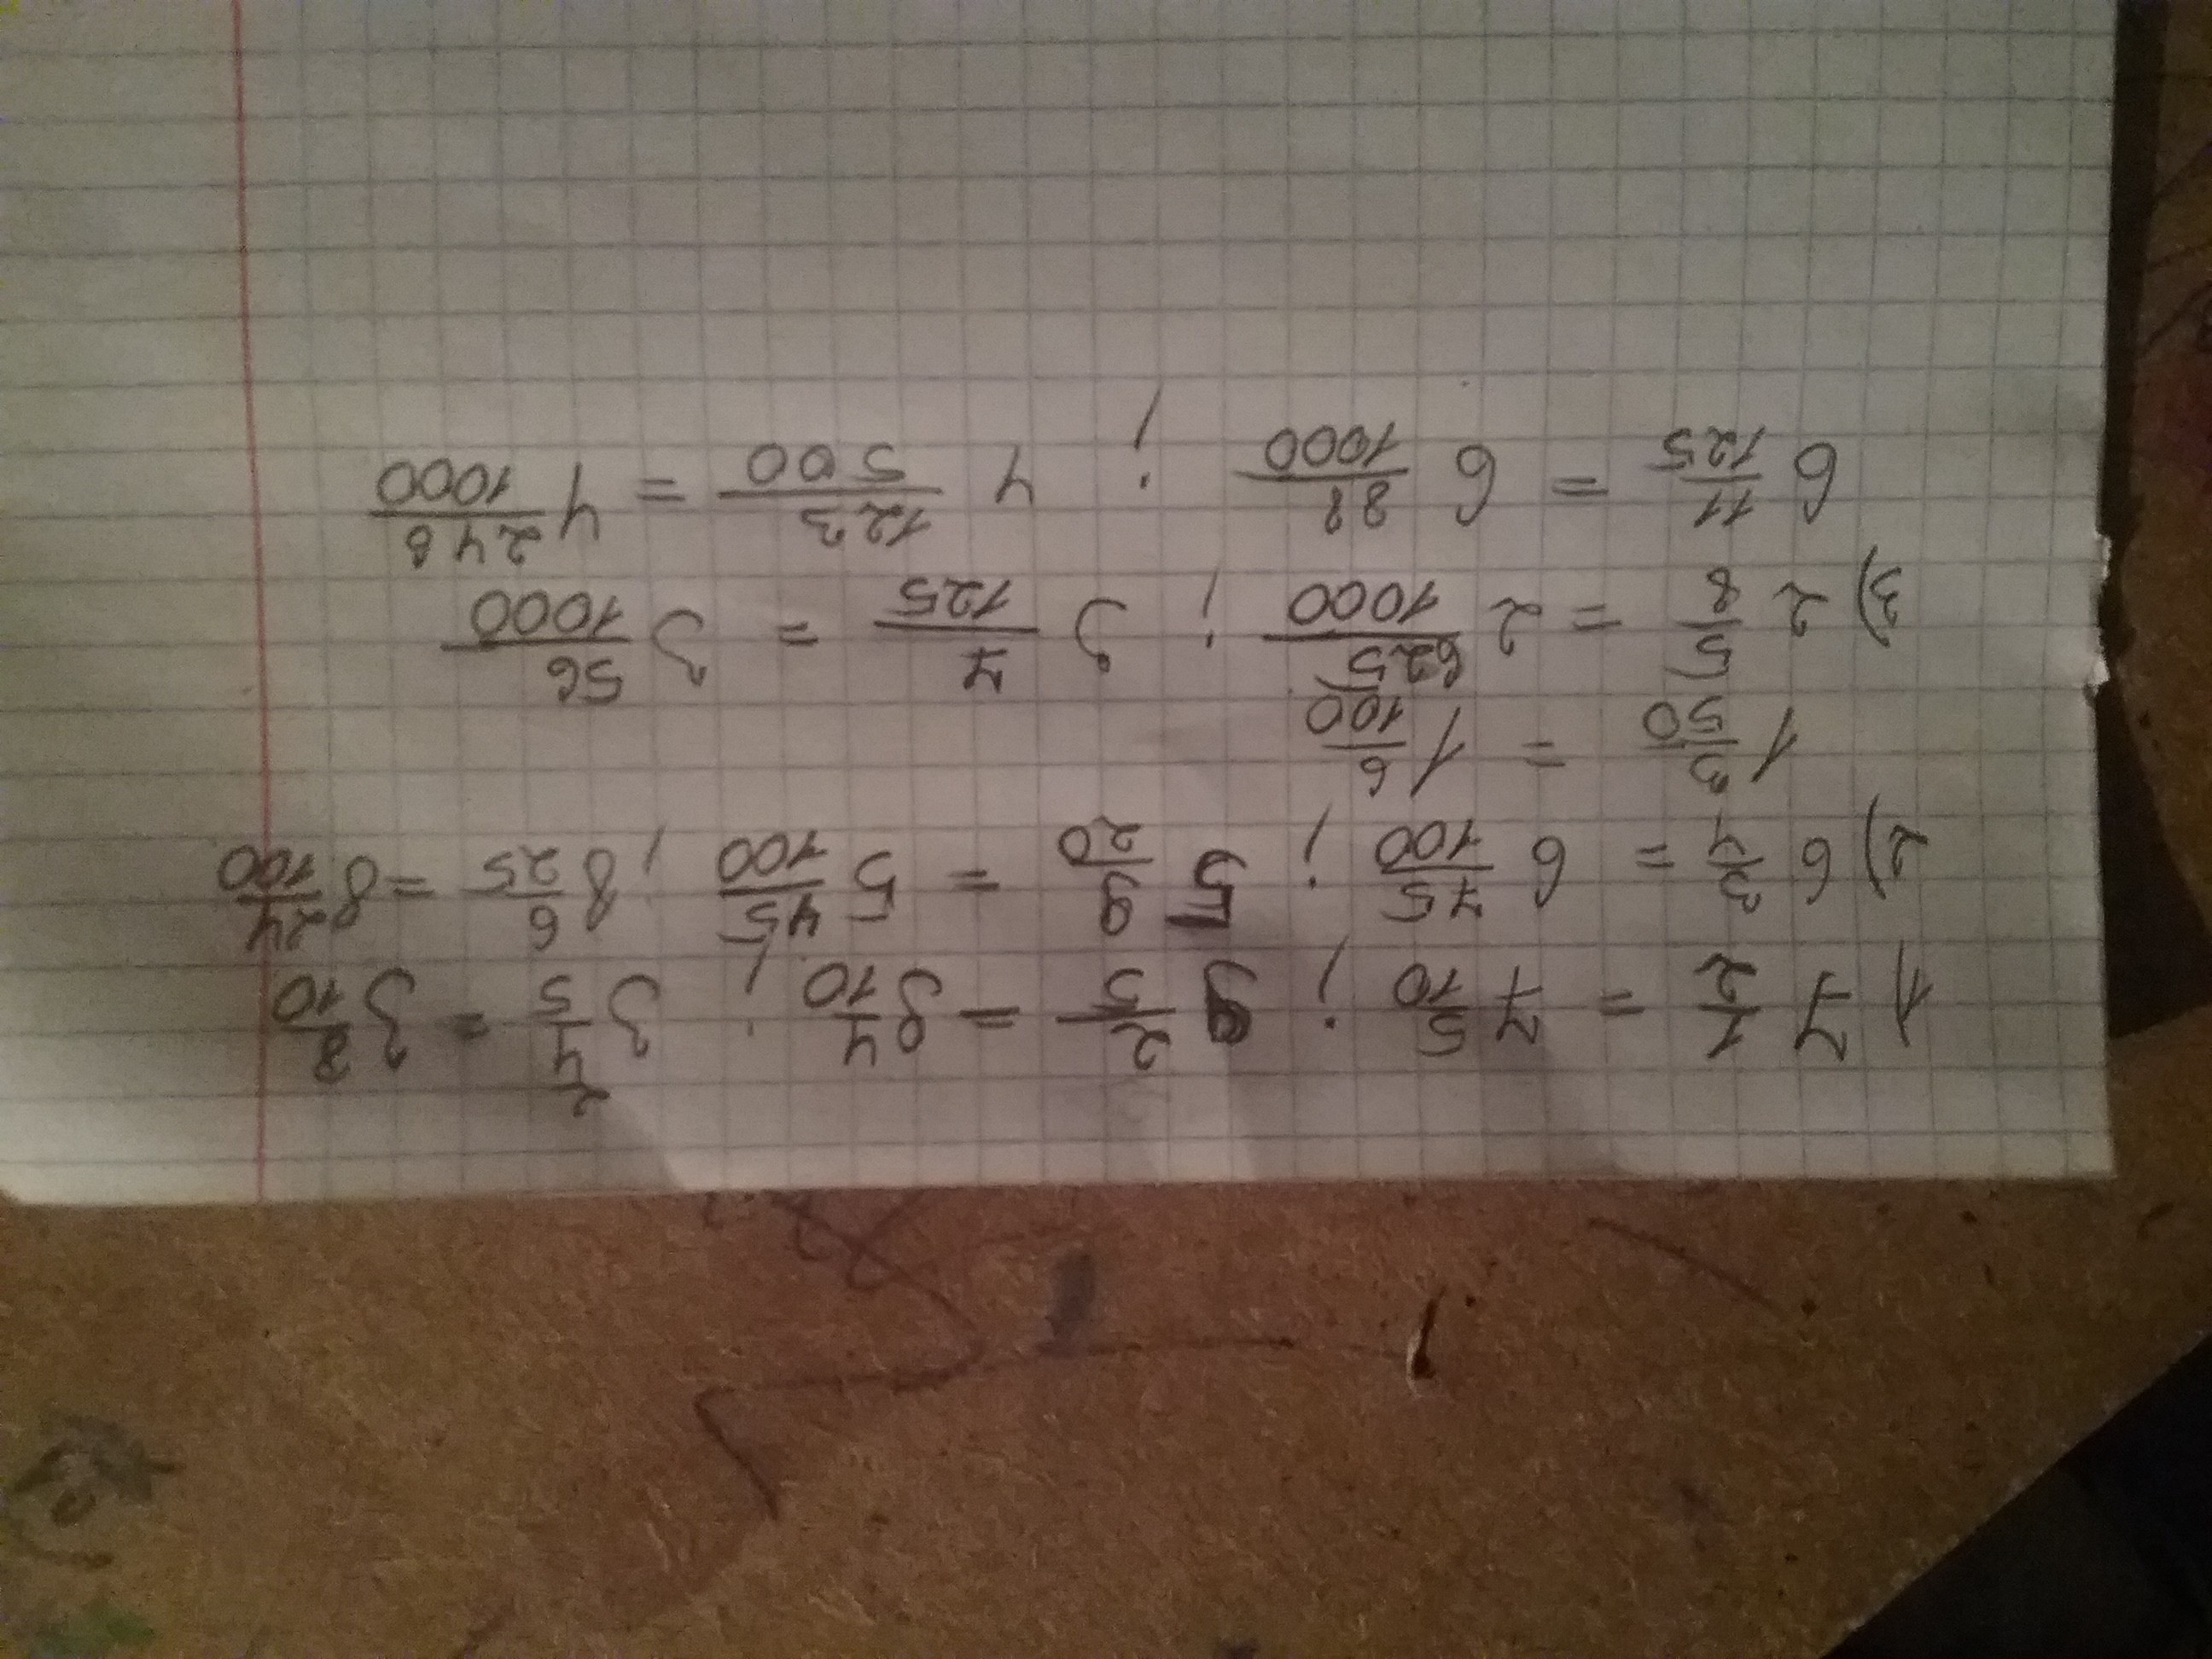 1 7 1/2 = 7 5/10 ; 8 2/5 = 8 4/10 ; 3 4/5 = 3 8/10
2) 6 3/4 = 6 75/100 ; 5 9/20 = 5 45/100 ; 8 6/25 = 8 24/100
1 3/50 = 1 6/100
3) 2 5/8 = 2 625/1000 ; 3 7/125 = 3 56/1000
6 11/125 = 6 88/1000 ; 4 123/500 = 4 246/1000